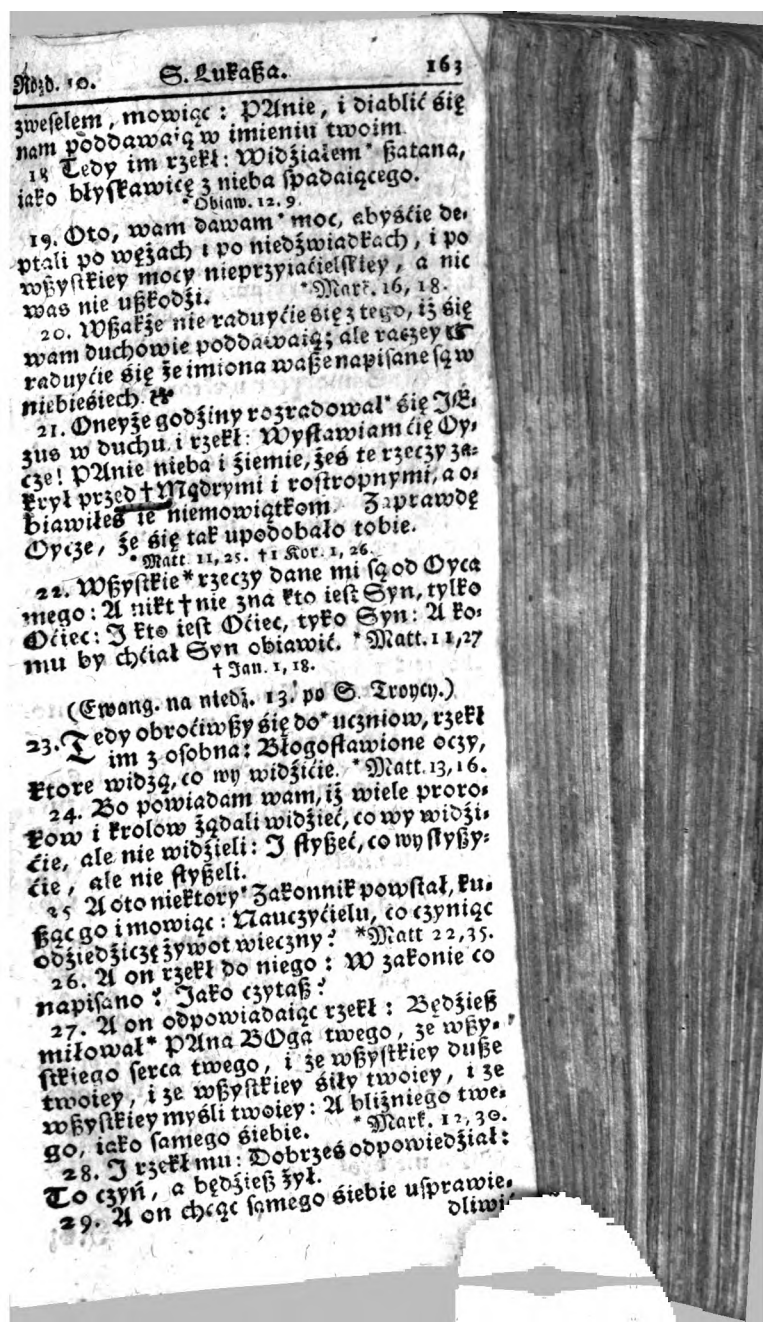 Rozd. 10. S. Lukaßa. 163
zweselem, mowiąc: PAnie, i diablić się
nam poddawaią w imieniu twoim
18 Tedy im rzekł: Widźiałem* ßatana,
iako błyskawicę z nieba spadaiącego.
* Obiaw. 12, 9.
19. Oto, wam dawam* moc, abyśćie de-
ptali po wężach i po niedźwiadkach, i po
wßystkiey mocy nieprzyiaćielskiey, a nic
was nie ußkodźi. *Mark. 16, 18.
20. Wßakże nie raduyćie się z tego, iż się
wam duchowie poddawaią; ale raczey
raduyćie się że imiona waße napisane są w
niebieśiech.
21. Oneyże godźiny rozradował* się JE-
zus w duchu i rzekł: Wysławiam ćię Oy-
cze! PAnie nieba i źiemie, żeś te rzeczy za-
krył przed † Mądrymi i rostropnymi, a o-
biawiłeś ie niemowiątkom Zaprawdę
Oycze, że się tak upodobało tobie.
* Matt. 11, 25. † 1 Kor. 1, 26.
22. Wßystkie* rzeczy dane mi są od Oyca
mego: A nikt † nie zna kto iest Syn, tylko
Oćiec: J kto iest Oćiec, tyko Syn: A ko-
mu by chćiał Syn obiawić. *Matt. 11, 27
† Jan. 1, 18.
(Ewang. na niedź. 13. po S. Troycy.)
23. Tedy obroćiwßy się do* uczniow, rzekł
im z osobna: Błogosławione oczy,
ktore widzą, co wy widźićie. *Matt. 13, 16.
24. Bo powiadam wam, iż wiele proro-
kow i krolow żądali widźieć, co wy widźi-
ćie, ale nie widźieli: J słyßeć, co wy słyßy-
ćie, ale nie słyßeli.
25 A oto niektory* Zakonnik powstał, ku-
ßąc go i mowiąc: Nauczyćielu, co czyniąc
odźiedźiczę żywot wieczny? *Matt 22, 35.
26. A on rzekł do niego: W zakonie co
napisano? Jako czytaß?
27. A on odpowiadaiąc rzekł: Będźieß
miłował* PAna BOga twego, ze wßy-
stkiego serca twego, i ze wßystkiey duße
twoiey, i ze wßystkiey śiły twoiey, i ze
wßystkiey myśli twoiey: A bliźniego twe-
go, iako samego śiebie. * Mark. 12, 30.
28. J rzekł mu: Dobrześ odpowiedźiał:
To czyń, a będźieß żył.
29. A on chcąc samego śiebie usprawie-